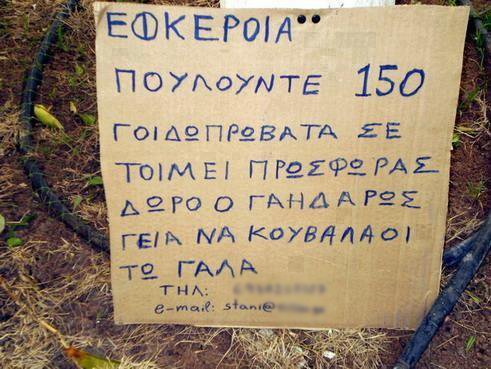 ΕΦΚΕΡΟΙΑ
ΠΟΥΛΟΥΝΤΕ 150
ΓΟΙΔΩΠΡΩΒΑΤΑ ΣΕ
ΤΟΙΜΕΙ ΠΡΩΣΦΩΡΑΣ
ΔΩΡΟ Ο ΓΑΗΔΑΡΩΣ
ΓΕΙΑ ΝΑ ΚΟΥΒΑΛΑΟΙ
ΤΩ ΓΑΛΑ
ΤΗΛ:
e-mail: stani@